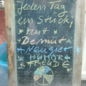 Jeden Tag
ein Stück
* Mut *
* Demut *
* Neugier
* HUMOR
* FREUDE